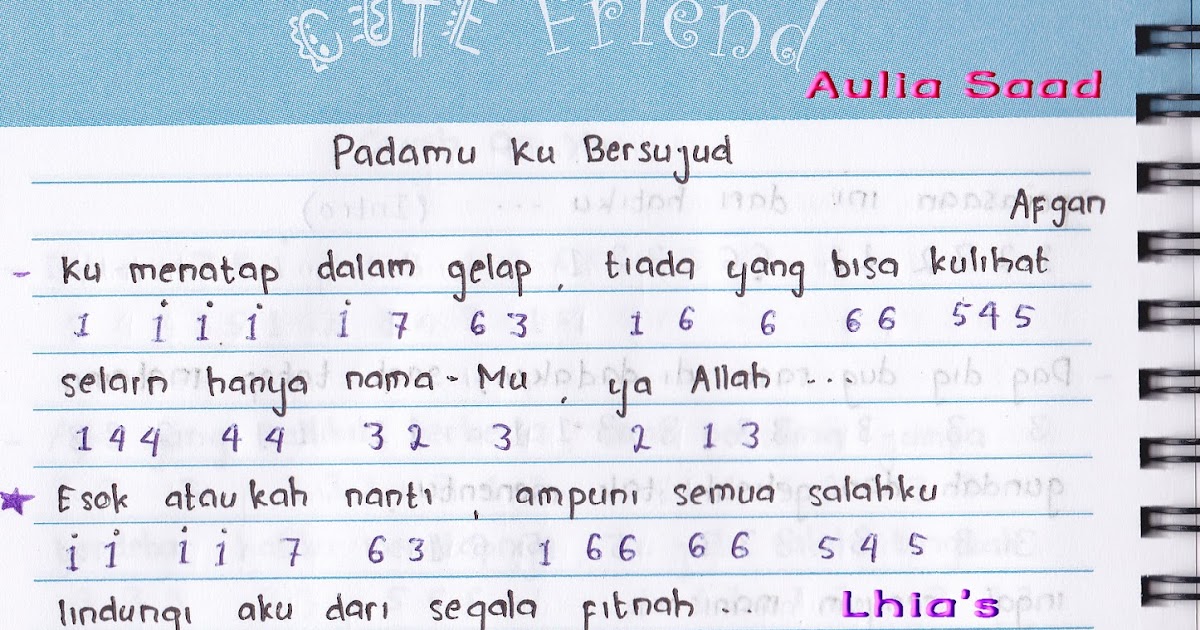 CUTE Friend
Aulia Saad
Padamu Ku Bersujud
Afgan
- Ku menatap dalam gelap, tiada yang bisa kulihat
1 i i i i 7 6 3 1 6 6 6 6 5 4 5
selain hanya nama-Mu, ya Allah ...
1 4 4 4 4 3 2 3 2 1 3
★ Esok ataukah nanti, ampuni semua salahku
i i i i 7 6 3 1 6 6 6 6 5 4 5
lindungi aku dari segala fitnah ...
Lhia's